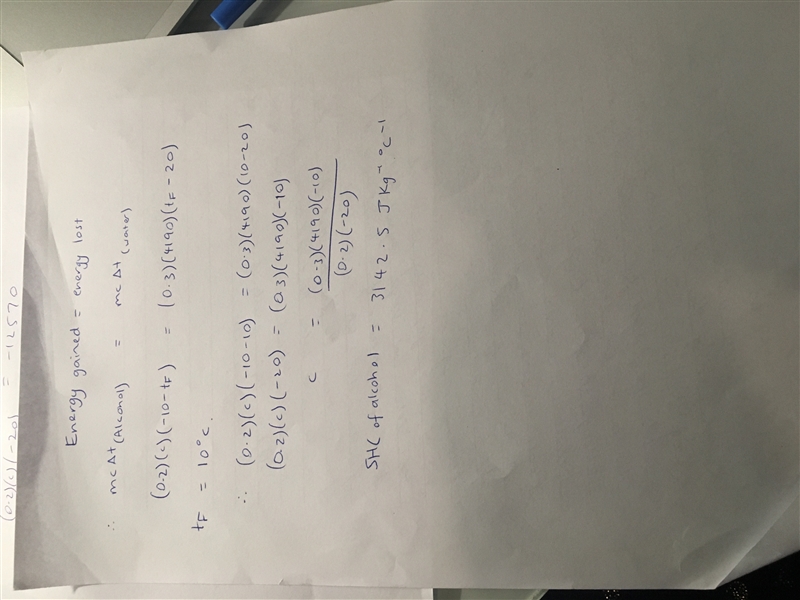 (0.2)(c)(-20) = -12570
Energy gained = energy lost
∴ mcΔt (Alcohol) = mcΔt (water)
(0.2)(c)(-10-tF) = (0.3)(4190)(tF-20)
tF = 10°C.
∴ (0.2)(c)(-10-10) = (0.3)(4190)(10-20)
(0.2)(c)(-20) = (0.3)(4190)(-10)
c = (0.3)(4190)(-10)
(0.2)(-20)
SHC of alcohol = 3142.5 JKg⁻¹ °C⁻¹